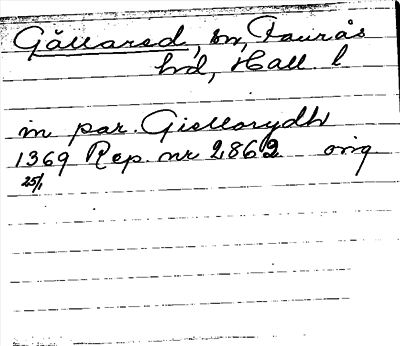 Gällared, sn, Faurås
hd, Hall. l
in par. Giellarydh
1369 Rep. nr 2862 orig
25/1